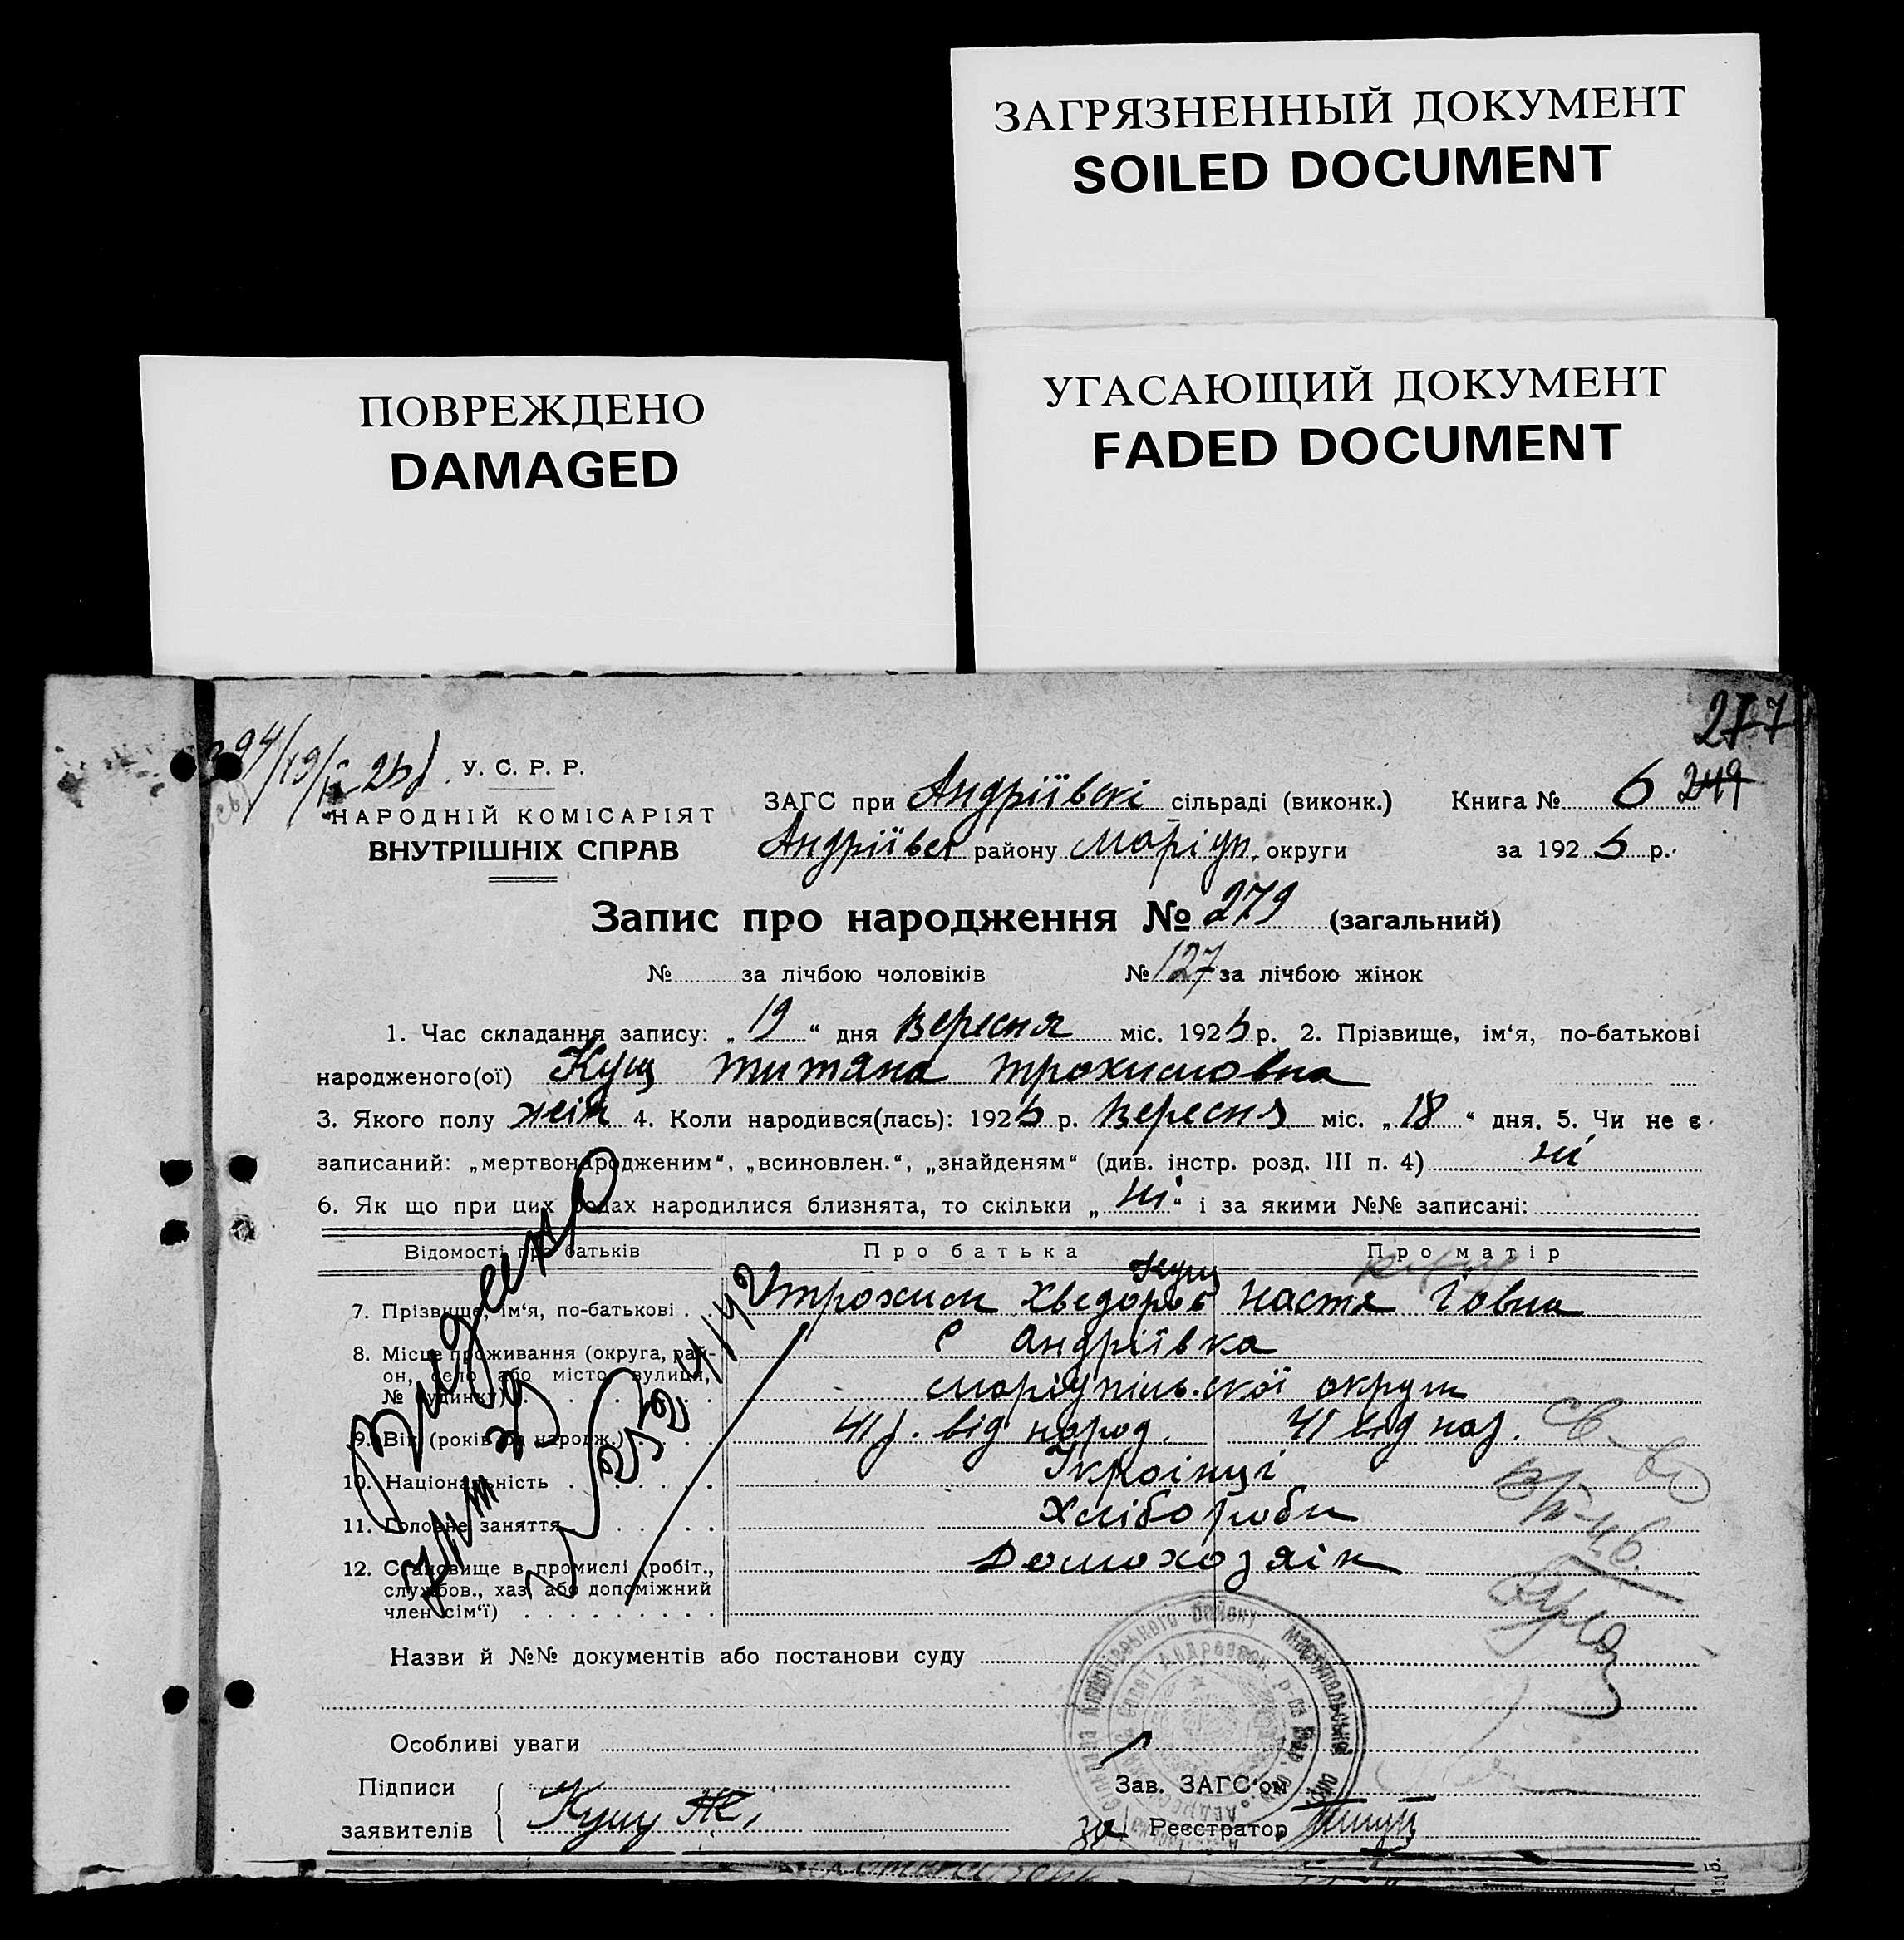 ЗАГРЯЗНЕННЫЙ ДОКУМЕНТ
SOILED DOCUMENT
УГАСАЮЩИЙ ДОКУМЕНТ
FADED DOCUMENT
ПОВРЕЖДЕНО
DAMAGED
277
У. С. Р. Р.
НАРОДНІЙ КОМІСАРІЯТ
ВНУТРІШНІХ СПРАВ
ЗАГС при Андріївскі сільраді (виконк.) Книга № 6 249
Андріївск району Маріуп. округи за 1925 р.
Запис про народження № 279 (загальний)
№ за лічбою чоловіків № 127 за лічбою жінок
1. Час складання запису: „19“ дня Вересня міс. 1925 р. 2. Прізвище, ім‘я, по-батькові
народженого(ої) Кущ Титяна Трохимовна
3. Якого полу жін 4. Коли народився(лась): 1925 р. Вересня міс. „18“ дня. 5. Чи не є
записаний: „мертвонародженим“, „всиновлен.“, „знайденям“ (див. інстр. розд. III п. 4) ні
6. Як що при цих родах народилися близнята, то скільки „ні“ і за якими №№ записані:
Відомості про батьків Про батька Про матір
Кущ
7. Прізвище, ім‘я, по-батькові Трохим Хведоров Настя Іовна
8. Місце проживання (округа, рай-
он, село або місто, вулиця,
№ будинку)
с Андріївка
Маріупільскої округи
9. Вік (років од народж.) 41 р. від народ. 41 від нар.
10. Національність Украінці
11. Головне заняття Хлібороби
12. Становище в промислі (робіт.,
службов., хаз. або допоміжний
член сім‘ї)
Домохозяін
Назви й №№ документів або постанови суду
Особливі уваги
Підписи
заявителів Кущ
Зав. ЗАГС‘ом
за Реєстратор